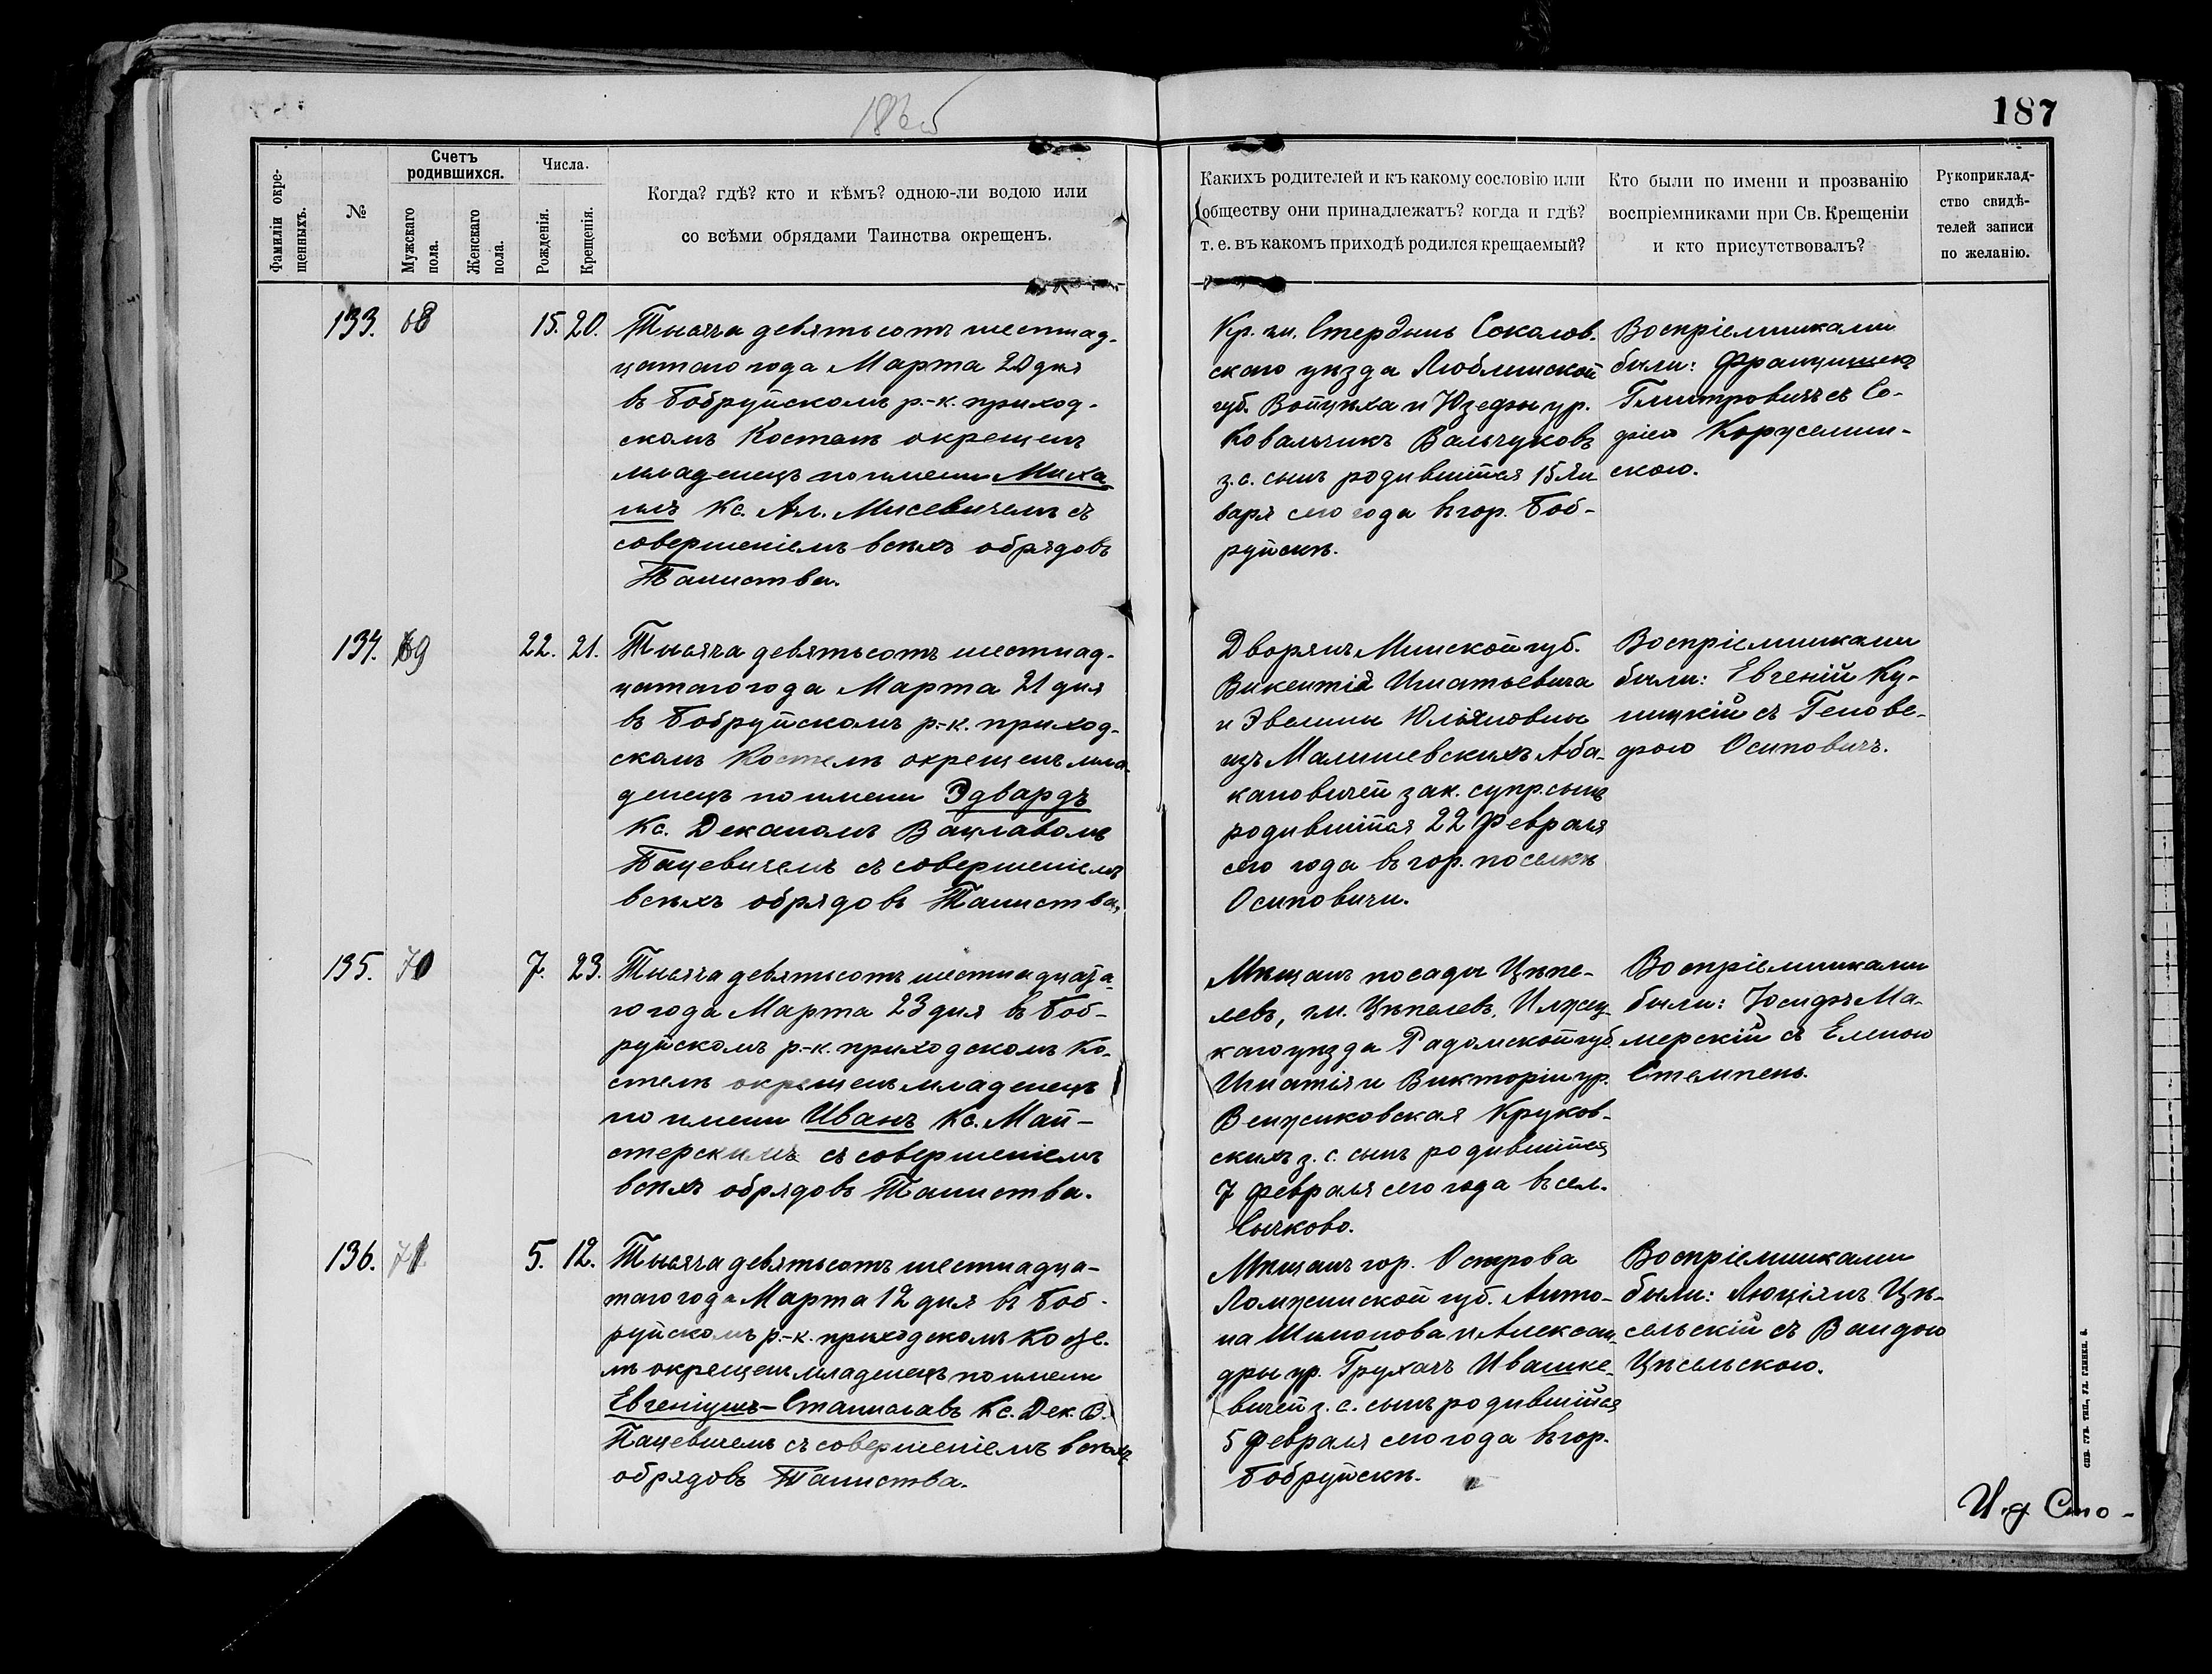 187
Фамиліи окре-
щенныхъ.
№
Счетъ
родившихся.
Мужскаго
пола.
Женскаго
пола.
Числа.
Рожденія.
Крещенія.
Когда? гдѣ? кто и кѣмъ? одною-ли водою или
со всѣми обрядами Таинства окрещенъ.
Какихъ родителей и къ какому сословію или
обществу они принадлежатъ? когда и гдѣ?
т. е. въ какомъ приходѣ родился крещаемый?
Кто были по имени и прозванію
воспріемниками при Св. Крещеніи
и кто присутствовалъ?
Рукоприклад-
ство свидѣ-
телей записи
по желанію.
133. 68 15. 20.
Тысяча девятьсотъ шестнад-
цатаго года Марта 20 дня
въ Бобруйскомъ р.-к. приход-
скомъ Костелѣ окрещенъ
младенецъ по имени Миха
илъ Кс. Ал. Мисевичемъ съ
совершеніемъ всѣхъ обрядовъ
Таинства.
Кр. гм. Стердынь Соколов-
скаго уѣзда Люблинской
губ. Войцѣха и Юзефы ур.
Ковальчикъ Вальчуковъ
з. с. сынъ родившійся 15 Ян
варя сего года въ гор. Боб-
руйскѣ.
Воспріемниками
были: Францишекъ
Гмитровичъ съ Со-
фіею
скою.
134. 69 22. 21.
Тысяча девятьсотъ шестнад-
цатаго года Марта 21 дня
въ Бобруйскомъ р.-к. приход-
скомъ Костелѣ окрещенъ мла-
денецъ по имени Эдвардъ
Кс. Деканомъ Вацлавомъ
Пацевичемъ съ совершеніемъ
всѣхъ обрядовъ Таинства.
Дворянъ Минской губ.
Викентія Игнатьевича
и Эвелины Юліяновны
изъ Малишевскихъ Аба-
кановичей зак. супр. сынъ
родившійся 22 Февраля
сего года въ гор. поселкѣ
Осиповичи.
Воспріемниками
были: Евгеній Ку-
ницкій съ Генове-
фою Осиповичъ.
135. 70 7. 23.
Тысяча девятьсотъ шестнадцата-
го года Марта 23 дня въ Боб-
руйскомъ р.-к. приходскомъ Ко-
стелѣ окрещенъ младенецъ
по имени Иванъ Кс. Май-
стерскимъ съ совершеніемъ
всѣхъ обрядовъ Таинства.
Мѣщанъ посада Цѣпе-
левъ, гм. Цѣпелевъ, Илжец-
каго уѣзда Радомской губ.
Игнатія и Викторіи ур.
Венжиковская Круков-
скихъ з. с. сынъ родившійся
7 Февраля сего года въ сел.
Сычково.
Воспріемниками
были: Іосифъ Ма-
мерскій съ Еленою
Стемпень.
136. 71 5. 12.
Тысяча девятьсотъ шестнадца-
таго года Марта 12 дня въ Боб-
руйскомъ р.-к. приходскомъ Косте-
лѣ окрещенъ младенецъ по имени
Евгеніушъ-Станиславъ Кс. Дек. В.
Пацевичемъ съ совершеніемъ всѣхъ
обрядовъ Таинства.
Мѣщанъ гор. Острова
Ломжинской губ. Анто-
на Шимонова и Алексан-
дры ур. Грухачъ Ивашке-
вичей з. с. сынъ родившійся
5 Февраля сего года въ гор.
Бобруйскѣ.
Воспріемниками
были: Люціянъ Цѣ-
сельскій съ Вандою
Цѣсельскою.
И. д. Сто-
СПБ. ГУБ. ТИП., УЛ. ГЛИНКИ, 6.